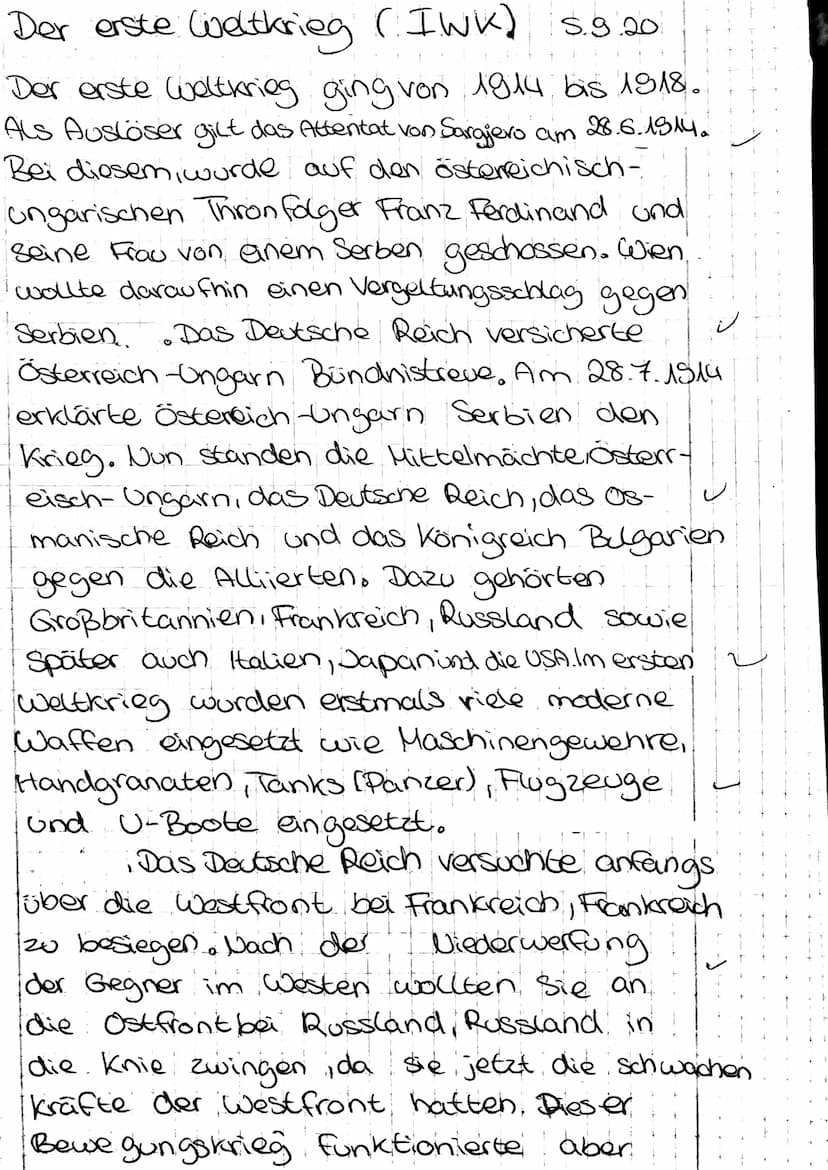 Der erste Weltkrieg (IWK) 5.9.20
Der erste Weltkrieg ging von 1914 bis 1918.
Als Auslöser gilt das Attentat von Sarajevo am 28.6.1914.
Bei diesem, wurde auf den österreichisch-
ungarischen Thronfolger Franz Ferdinand und
seine Frau von einem Serben geschossen. Wien
wollte daraufhin einen Vergeltungsschlag gegen
Serbien. Das Deutsche Reich versicherte
Österreich-Ungarn Bündnistreue. Am 28.7.1914
erklärte Östereich-Ungarn Serbien den
Krieg. Nun standen die Mittelmächte, Österr-
eisch-Ungarn, das Deutsche Reich, das Os-
manische Reich und das Königreich Bulgarien
gegen die Alliierten. Dazu gehörten
Großbritannien, Frankreich, Russland sowie
später auch Italien, Japan und die USA. Im ersten
Weltkrieg wurden erstmals viele moderne
Waffen eingesetzt wie Maschinengewehre,
Handgranaten, Tanks (Panzer), Flugzeuge
und U-Boote eingesetzt.
Das Deutsche Reich versuchte anfangs
über die Westfront bei Frankreich, Frankreich
zu besiegen. Nach der Niederwerfung
der Gegner im Westen wollten Sie an
die Ostfront bei Russland, Russland in
die Knie zwingen, da sie jetzt die schwachen
Kräfte der Westfront hatten. Dieser
Bewegungskrieg funktionierte aber